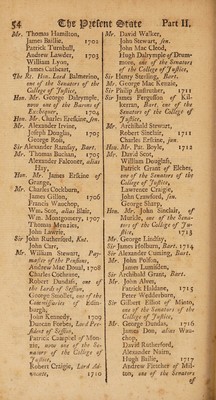 54 The Present State Part II.
Mr. Thomas Hamilton,
James Baillie, 1702
Patrick Turnbull,
Andrew Lawder, 1703
William Lyon,
James Cathcart,
The Rt. Hon. Lord Balmerino,
one of the Senators of the
College of Justice,
Hon. Mr. George Dalrymple,
now one of the Barons of
Exchequer, 1704
Hon. Mr. Charles Areskine, sen.
Mr. Alexander Irvine,
Joseph Douglas, 1705
George Ross,
Sir Alexander Ramsay, Bart.
Mr. Thomas Buchan, 1705
Alexander Falconer, alias
Hay,
Hon. Mr. James Erskine of
Grange,
Mr. Charles Cockburn,
James Gillon, 1706
Francis Wauchop,
Wm. Scot, alias Blair,
Wm. Montgomery, 1707
Thomas Menzies,
John Lawrie,
Sir John Rutherford, Knt.
John Carr,
Mr. William Stewart, Pay-
master of the Pensions,
Andrew Mac Doual, 1708
Charles Cochrane,
Robert Dundass, one of
the Lords of Session,
George Smollet, one of the
Commissaries of Edin-
burgh,
John Kennedy, 1709
Duncan Forbes, Lord Pre-
sident of Session,
Patrick Campbel of Mon-
zie, now one of the Se-
nators of the College of
Justice,
Robert Craigie, Lord Ad-
vocate, 1710
Mr. David Walker,
John Stewart, jun.
John Mac Cleod,
Hugh Dalrymple of Drum-
more, one of the Senators
of the College of Justice,
Sir Henry Sterling, Bart.
Mr. George Mac Kenzie,
Sir Philip Anstruther, 1711
Sir James Fergusson of Kil-
kerran, Bart. one of the
Senators of the College of
Justice,
Mr. Archibald Stewart,
Robert Sinclair, 1711
Charles Erskine, jun.
Hon. Mr. Pat. Boyle, 1712
Mr. David Scot,
William Douglass,
Patrick Grant of Elches,
one of the Senators of the
College of Justice,
Lawrence Craigie,
John Crawford, sen.
George Sharp,
Hon. Mr. John Sinclair, of
Murkle, one of the Sena-
tors of the College of Ju-
stice, 1713
Mr. George Lindsay,
Sir James Holburn, Bart. 1714
Sir Alexander Cuming, Bart.
Mr. John Polson,
James Lumisden,
Sir Archibald Grant, Bart.
Mr. John Alves,
Patrick Haldane, 1715
Peter Wedderburn,
Sir Gilbert Elliot of Minto,
one of the Senators of the
College of Justice,
Mr. George Dundas, 1716
James Don, alias Wau-
chop,
David Rutherford,
Alexander Nairn,
Hugh Baillie, 1717
Andrew Fletcher of Mil-
ton, one of the Senators
of